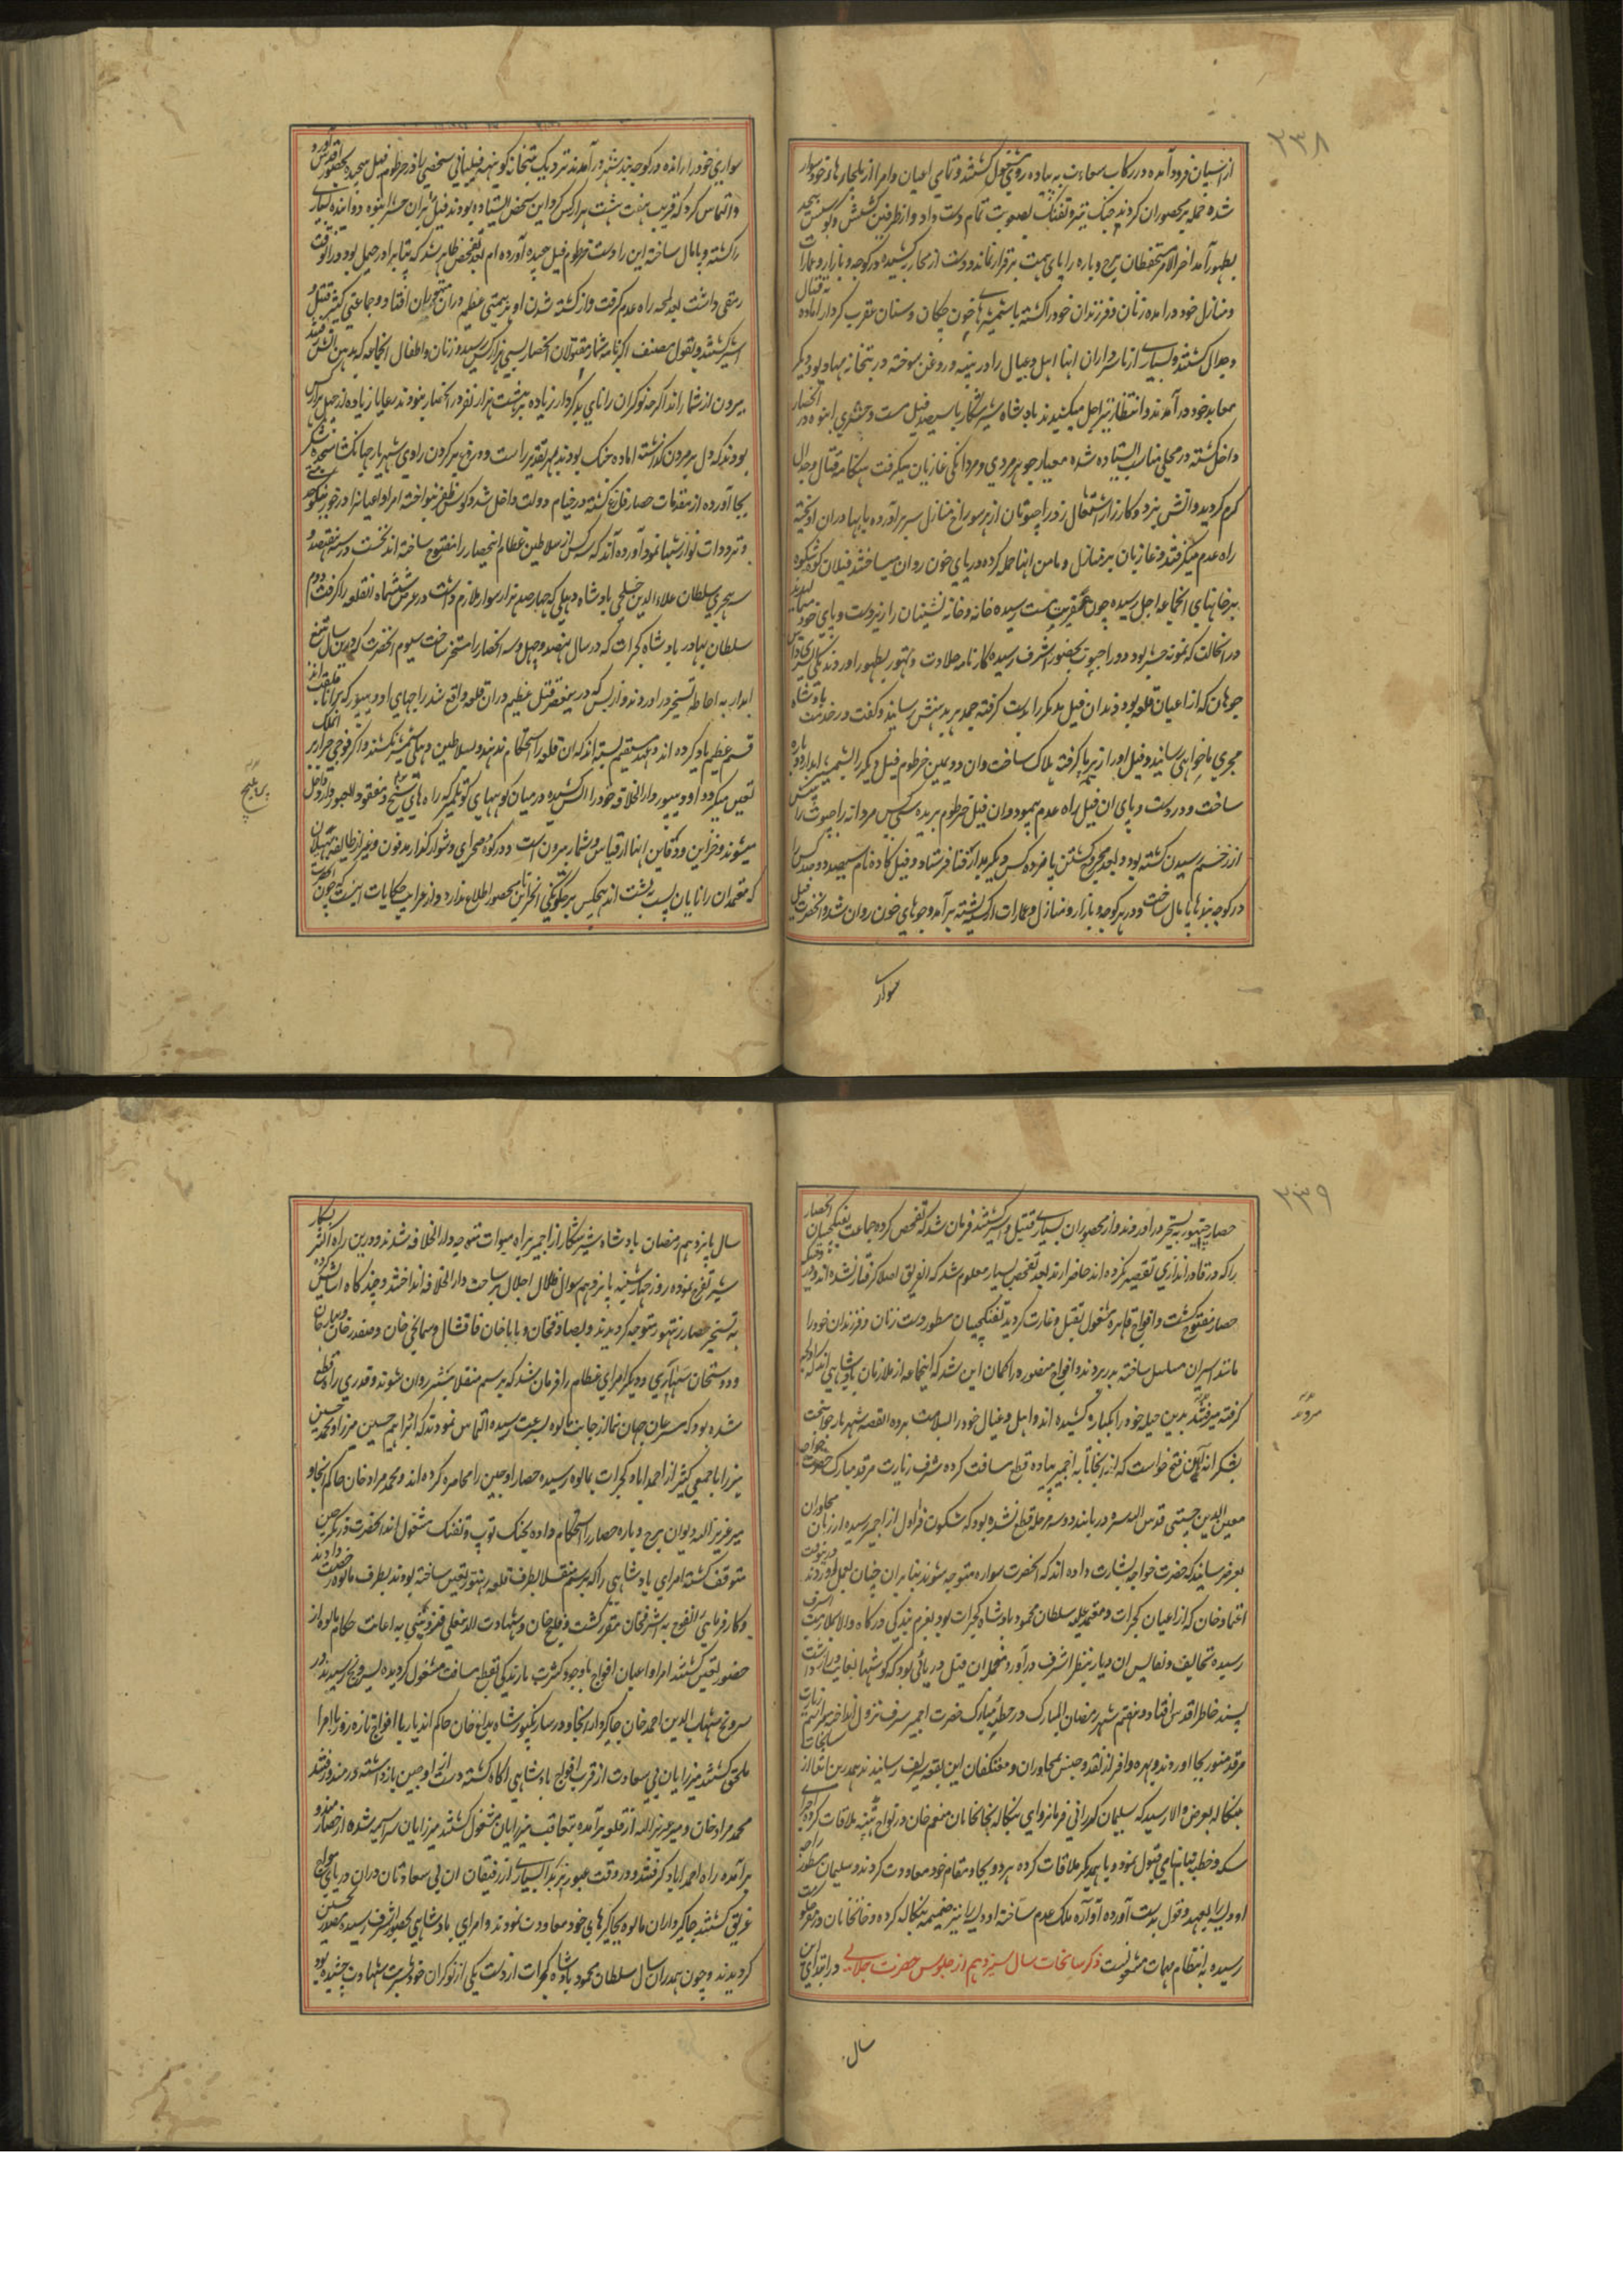 ۲۳۸
از اسپان فرود آمده در رکاب سعادت به پیاده روی مشغول گشتند و تمامی اعیان و امرا از ملچار هاء خود سوار
شده حمله بر محصوران کردند جنک تیر و تفنک بصعوبت تمام دست داد و از طرفین کشش و کوشش بیحد
بظهور آمد اخر الامر مستحفظان برج و باره را پای همت برقرار نماند و دست از محاربه کشیده در کوچه و بازار و عمارات
و منازل خود در امده زنان و فرزندان خود را کشته با شمشیرهای خون چکان و سنان عقرب کردار اماده قتال
و جدال کشتند و بسیاری از سرداران اینها اهل و عیال را در پنبه و روغن سوخته در بتخانه مهادیو و دیکر
معابد خود در آمدند و انتظار تیر اجل میکشیدند بادشاه شیر شکار با سیصد فیل مست و حشری انبوه در انحصار
داخل کشته در محلی مناسب ایستاده شده معیار جوهر مردی و مردانکی غازیان میکرفت هنکامه قتال و جدال
کرم کردید و اتش نبرد و کارزار اشتعال زد راجپوتان از هر سوراخ منازل سر بر آورده با بهادران اویخته
راه عدم میکرفتند و غازیان بر منازل و مامن اینها حمله کرده دریای خون روان میساختند فیلان کوه شکوه
بر خانهای انجماعه اجل رسیده چون عفریت مست رسیده خانه و خانه نشینان را زیر دست و پای خود میمالیدند
در انحالت که نمونه حشر بود دو راجپوت بحضور اشرف رسیده کارنامه جلادت و تهور بظهور اوردند یکی ایسرداس
چوهان که از اعیان قلعه بود دندان فیل مدهکر را بدست کرفته جمدهر بدهنش رسانید و کفت در خدمت بادشاه
مجری ما خواهی رسانید و فیل او را زیر پا کرفته هلاک ساخت و ان دویمین خرطوم فیل دیکر را بشمشیر ابدار دو پاره
ساخت و در دست و پای ان فیل راه عدم پیمود و ان فیل خرطوم بریده سی کس مردانه راجپوت را پیش
از زخم رسیدن کشته بود و بعد مجروح کشتن پانزده کس دیکر بدار فنا فرستاد و فیل کاده نام سیصد و چند کس را
در کوچه بندها پامال ساخت و در هر کوچه و بازار و منازل و عمارات از کشته پشته بر آمد و جوهای خون روان شد و انحضرت فیل
سواری
سواری خود را رانده در کوچه بند شهر در آمدند نزدیک بتخانه کوبند فیلبانی شخصی را در خرطوم فیل پیچیده بحضور اقدس آورد
و التماس کرد که قریب هفت هشت هزار کس کرد این شخص ایستاده بودند فیل بران حشر انبوه دوانیده بسیاری
را کشته و پامال ساخته این را دست خرطوم فیل پیچیده آورده ام بعد تفحص ظاهر شد که پتا برادر جیمل بود در انوقت
رمقی داشت بعد لمحه راه عدم کرفت و از کشته شدن او هزیمتی عظیم دران متهوران افتاد و جماعتی کثیر قتیل و
اسیر کشتند و بقول مصنف اکبرنامه شمار مقتولان انحصار بسی هزار کس رسید و زنان و اطفال انجماعه که بدین اتش رفتند
بیرون از شمار اند اکرچه نوکران رانای بدکردار زیاده بر هشت هزار نفر در انحصار نبودند رعایا زیاده از چهل هزار کس
بودند که دل بر مردن کذاشته اماده جنک بودند بهر تقدیر راست و دروغ بر کردن راوی شهریار جهان کشا سجده شکر
بجا آورده از مقدمات حصار فارغ کشته در خیام دولت داخل شد و کوس ظفر نواخته امرا و اعیانرا در خور نیکو خدمتی
و ترددات نوازشها نمود آورده اند که سه کس از سلاطین عظام اینحصار را مفتوح ساخته اند نخست در سنه هفتصد و
سه هجری سلطان علاء الدین خلجی بادشاه دهلی که چهار صد هزار سوار ملازم داشت در عرض شش ماه انقلعه را کرفت دوم
سلطان بهادر بادشاه کجرات که در سال نهصد و چهل و سه انحصار را مسخر ساخت سیوم انحضرت که درین سال بتیغ
ابدار به احاطه تسخیر در اوردند و از بس که در هر سه نفر قتل عظیم دران قلعه واقع شد راجهای اودیپور که برانا ملقب اند
قسم عظیم یاد کرده اند و عهد مستقیم بسته اند که ان قلعه را استحکام ندهند و بسلاطین دهلی شمشیر نکشند و اکر فوجی جرار بر انملک
تعین میکردد اودیپور دار الخلافه خود را اتش کشیده در میان کوههای کوتلمیر که راه های شنیع و مفقود للعبور دارد داخل
میشوند و خزاین و دفاین اینها از قیاس و شمار بیرون است و در کوه و صحرای دشوار کذار مدفون و غیر از طایفه بهیلان
که معتمدان رانایان پشت به پشت اند هیچکس بر چکونکی انخزاین نامحصور اطلاع ندارد و از غرایب حکایات اینست که چون انحضرت
۲۳۹
حصار چیتور به تسخیر در اوردند و از محصوران بسیاری قتیل و اسیر کشتند فرمان شد که تفحص کرده جماعت تفنکچیان انحصار
را که در قادر اندازی تقصیر نکرده اند حاضر ارند بعد تفحص بسیار معلوم شد که انفریق اصلا کرفتار نشده اند وقتیکه
حصار مفتوح کشت و افواج قاهره مشغول بقتل و غارت کردید تفنکچیان مسطور دست زنان و فرزندان خود را
مانند اسیران مسلسل ساخته بدر بردند و افواج منصوره را کمان این شد که اینجماعه از ملازمان بادشاهی اند که اوکچه
کرفته میرفتند بدین حیله خود را بکناره کشیده اند و اهل و عیال خود را بسلامت برده القصه شهریار جوانبخت
بشکرانه این فتح خواست که از انجا تا به اجمیر پیاده قطع مسافت کرده شرف زیارت مرقد مبارک حضرت خواجه
معین الدین چشتی قدس الله سره دریابند دو سه مرحله قطع نشده بود که شکون قراول از اجمیر رسیده از زبان مجاوران
بعرض رسانید که حضرت خواجه بشارت داده اند که انحضرت سواره متوجه شوند بنابران چنان بعمل اوردند درینوقت
اعتماد خان که از اعیان کجرات و معتمد علیه سلطان محمود بادشاه کجرات بود بعزم بندکی درکاه والا بملازمت اشرف
رسیده تحایف و نفایس ان دیار بنظر اشرف در آورد منجمله ان فیل دریائی بود که کوشها بغایت دراز داشت
پسند خاطر اقدس افتاد و هفتم شهر رمضان المبارک در خطه مبارک حضرت اجمیر شرف نزول انداختند مراسم زیارت
مرقد منور بجا اوردند و بهره وافر از نقد و جنس بمجاوران و معتکفان این بقعه شریف رسانیدند همدرین اثنا از سانحات
بنکاله بعرض والا رسید که سلیمان کورانی فرمانروای بنکاله بخانخانان منعم خان در نواح پتنه ملاقات کرده اجرای
سکه و خطبه بنام نامی قبول نمود و با همدیکر ملاقات کرده هر دو بجا و مقام خود معاودت کردند و سلیمان مسطور راجه
اودیسه را بعهد و قول بدست آورده آواره ملک عدم ساخته اودیسه را نیز ضمیمه بنکاله کرده و خانخانان در مقر حکومت
رسیده به انتظام مهمات مشغولست ذکر سانحات سال سیزدهم از جلوس حضرت جلالی در ابتدای این
سال
سال پانزدهم رمضان بادشاه شیر شکار از اجمیر براه میوات متوجه دار الخلافه شدند و درین راه اکثر بشکار
شیر تفرج نموده روز چهار شنبه پانزدهم شوال ظلال اجلال بر ساحت دار الخلافه انداختند و چند کاه اسایش کرده
به تسخیر حصار رنتهور متوجه کردیدند و بصادقخان و باباخان قاقشال و سمانجی خان و صفدر خان و بهادر خان
و دوستخان سهاری و دیکر امرای عظام را فرمان شد که برسم منقلا پیشتر روان شوند و قدری راه قطع
شده بود که مسرعان جهان نما از جانب مالوه بسرعت رسیده التماس نمودند که ابراهیم حسین میرزا و محمد حسین
میرزا با جمعی کثیر از احمداباد کجرات بمالوه رسیده حصار اوجین را محاصره کرده اند و محمد مراد خان حاکم انجا و
میر عزیز الله دیوان برج و باره حصار را استحکام داده بجنک توپ و تفنک مشغول اند انحضرت در همین حین
متوقف کشته امرای بادشاهی را که برسم منقلا بطرف قلعه رنتهور تعین ساخته بودند بطرف مالوه رخصت دادند
و کارفرمایی انفوج به اشرفخان مقرر کشت و قلیج خان و شهادت الله معلی قزوینی به اعانت حکام مالوه از
حضور تعین کشتند امرا و اعیان افواج باوجود کثرت بارندکی بقطع مسافت مشغول کردیده بسرونج رسیدند و در
سرونج شهاب الدین احمد خان جاکیردار انجا و در سارنکپور شاه بداغخان حاکم اندیار با افواج تازه زور با امرا
ملحق کشتند میرزایان بی سعادت از قرب افواج بادشاهی اکاه کشته دست از اوجین بازداشته در مندو رفتند
محمد مراد خان و میر عزیز الله از قلعه برآمده بتعاقب میرزایان مشغول کشتند میرزایان سراسیمه شده از حصار مندو
برآمده راه احمداباد کرفتند و در وقت عبور نربدا بسیاری از رفیقان ان بی سعادتان دران دریای مواج
غریق کشتند جاکیرداران مالوه بجاکیرهای خود معاودت نمودند و امرای بادشاهی بحضور اشرف رسیده بحضور تحسین
کردیدند و چون همدران سال سلطان محمود بادشاه کجرات از دست یکی از نوکران خود شربت شهادت چشیده بود